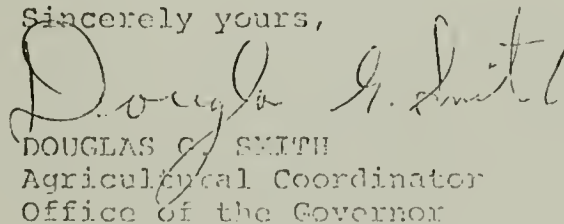 Sincerely yours,
Douglas G. Smith
DOUGLAS G. SMITH
Agricultural Coordinator
Office of the Governor